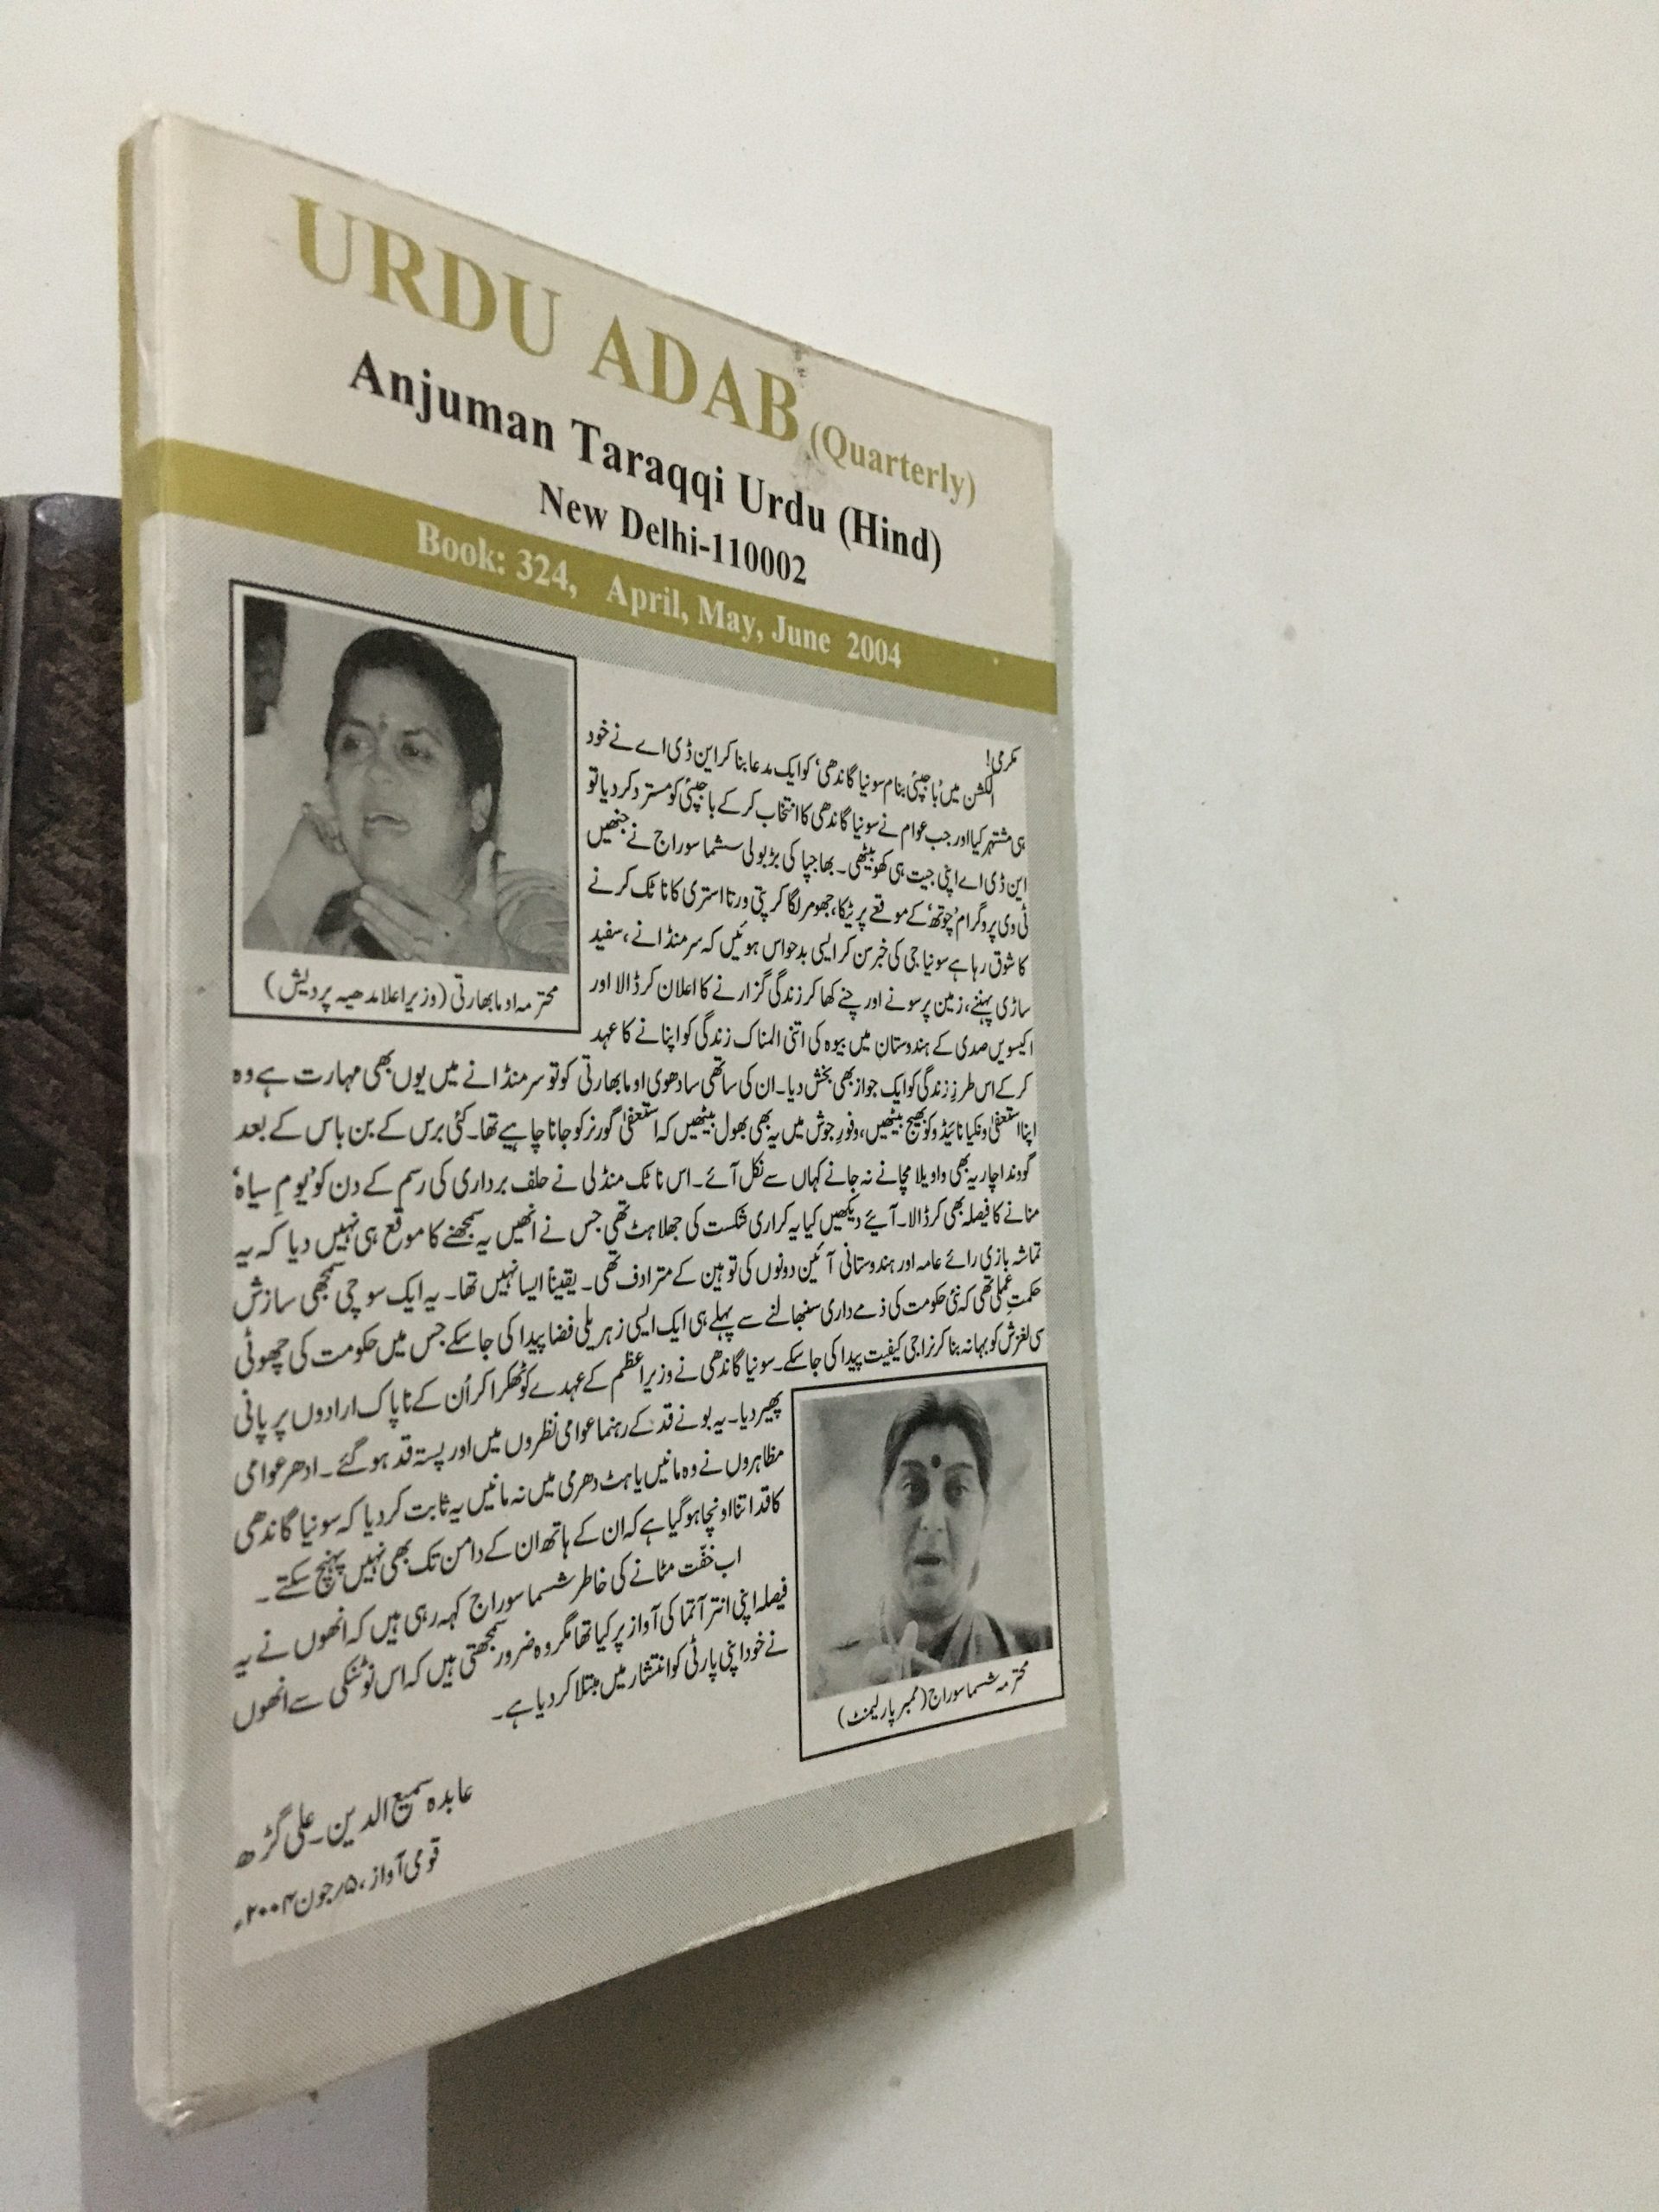 URDU ADAB (Quarterly)
Anjuman Taraqqi Urdu (Hind)
New Delhi-110002
Book: 324, April, May, June 2004
مکرمی!
الکشن میں ’باجپئی بنام سونیا گاندھی‘ کو ایک مدعا بنا کر این ڈی اے نے خود
ہی مشتہر کیا اور جب عوام نے سونیا گاندھی کا انتخاب کر کے باجپئی کو مسترد کر دیا تو
این ڈی اے اپنی جیت ہی کھو بیٹھی۔ بھاجپا کی بڑبولی سشما سوراج نے جنھیں
ٹی وی پروگرام ’چوتھ‘ کے موقعے پر ٹیکا، جھومر لگا کر پتی ورتا استری کا ناٹک کرنے
کا شوق رہا ہے سونیا جی کی خبر سن کر ایسی بدحواس ہوئیں کہ سر منڈانے، سفید
ساڑی پہننے، زمین پر سونے اور چنے کھا کر زندگی گزارنے کا اعلان کر ڈالا اور
اکیسویں صدی کے ہندوستان میں بیوہ کی اتنی المناک زندگی کو اپنانے کا عہد
محترمہ اوما بھارتی (وزیر اعلا مدھیہ پردیش)
کر کے اس طرزِ زندگی کو ایک جواز بھی بخش دیا۔ ان کی ساتھی سادھوی اوما بھارتی کو تو سر منڈانے میں یوں بھی مہارت ہے وہ
اپنا استعفیٰ ونکیا نائیڈو کو بھیج بیٹھیں، وفورِ جوش میں یہ بھی بھول بیٹھیں کہ استعفیٰ گورنر کو جانا چاہیے تھا۔ کئی برس کے بن باس کے بعد
گووندا چاریہ بھی واویلا مچانے نہ جانے کہاں سے نکل آئے۔ اس ناٹک منڈلی نے حلف برداری کی رسم کے دن کو ’یومِ سیاہ‘
منانے کا فیصلہ بھی کر ڈالا۔ آیئے دیکھیں کیا یہ کراری شکست کی جھلاہٹ تھی جس نے انھیں یہ سمجھنے کا موقع ہی نہیں دیا کہ یہ
تماشہ بازی رائے عامہ اور ہندوستانی آئین دونوں کی توہین کے مترادف تھی۔ یقیناً ایسا نہیں تھا۔ یہ ایک سوچی سمجھی سازش
حکمتِ عملی تھی کہ نئی حکومت کی ذمے داری سنبھالنے سے پہلے ہی ایک ایسی زہریلی فضا پیدا کی جا سکے جس میں حکومت کی چھوٹی
سی لغزش کو بہانہ بنا کر نراجی کیفیت پیدا کی جا سکے۔ سونیا گاندھی نے وزیر اعظم کے عہدے کو ٹھکرا کر اُن کے ناپاک ارادوں پر پانی
پھیر دیا۔ یہ بونے قد کے رہنما عوامی نظروں میں اور پستہ قد ہو گئے۔ ادھر عوامی
مظاہروں نے وہ مانیں یا ہٹ دھرمی میں نہ مانیں یہ ثابت کر دیا کہ سونیا گاندھی
کا قد اتنا اونچا ہو گیا ہے کہ ان کے ہاتھ ان کے دامن تک بھی نہیں پہنچ سکتے۔
اب خفّت مٹانے کی خاطر سشما سوراج کہہ رہی ہیں کہ انھوں نے یہ
فیصلہ اپنی انتر آتما کی آواز پر کیا تھا مگر وہ ضرور سمجھتی ہیں کہ اس نوٹنکی سے انھوں
نے خود اپنی پارٹی کو انتشار میں مبتلا کر دیا ہے۔
محترمہ سشما سوراج (ممبر پارلیمنٹ)
عابدہ سمیع الدین۔ علی گڑھ
قومی آواز، ۵؍جون ۲۰۰۴ء